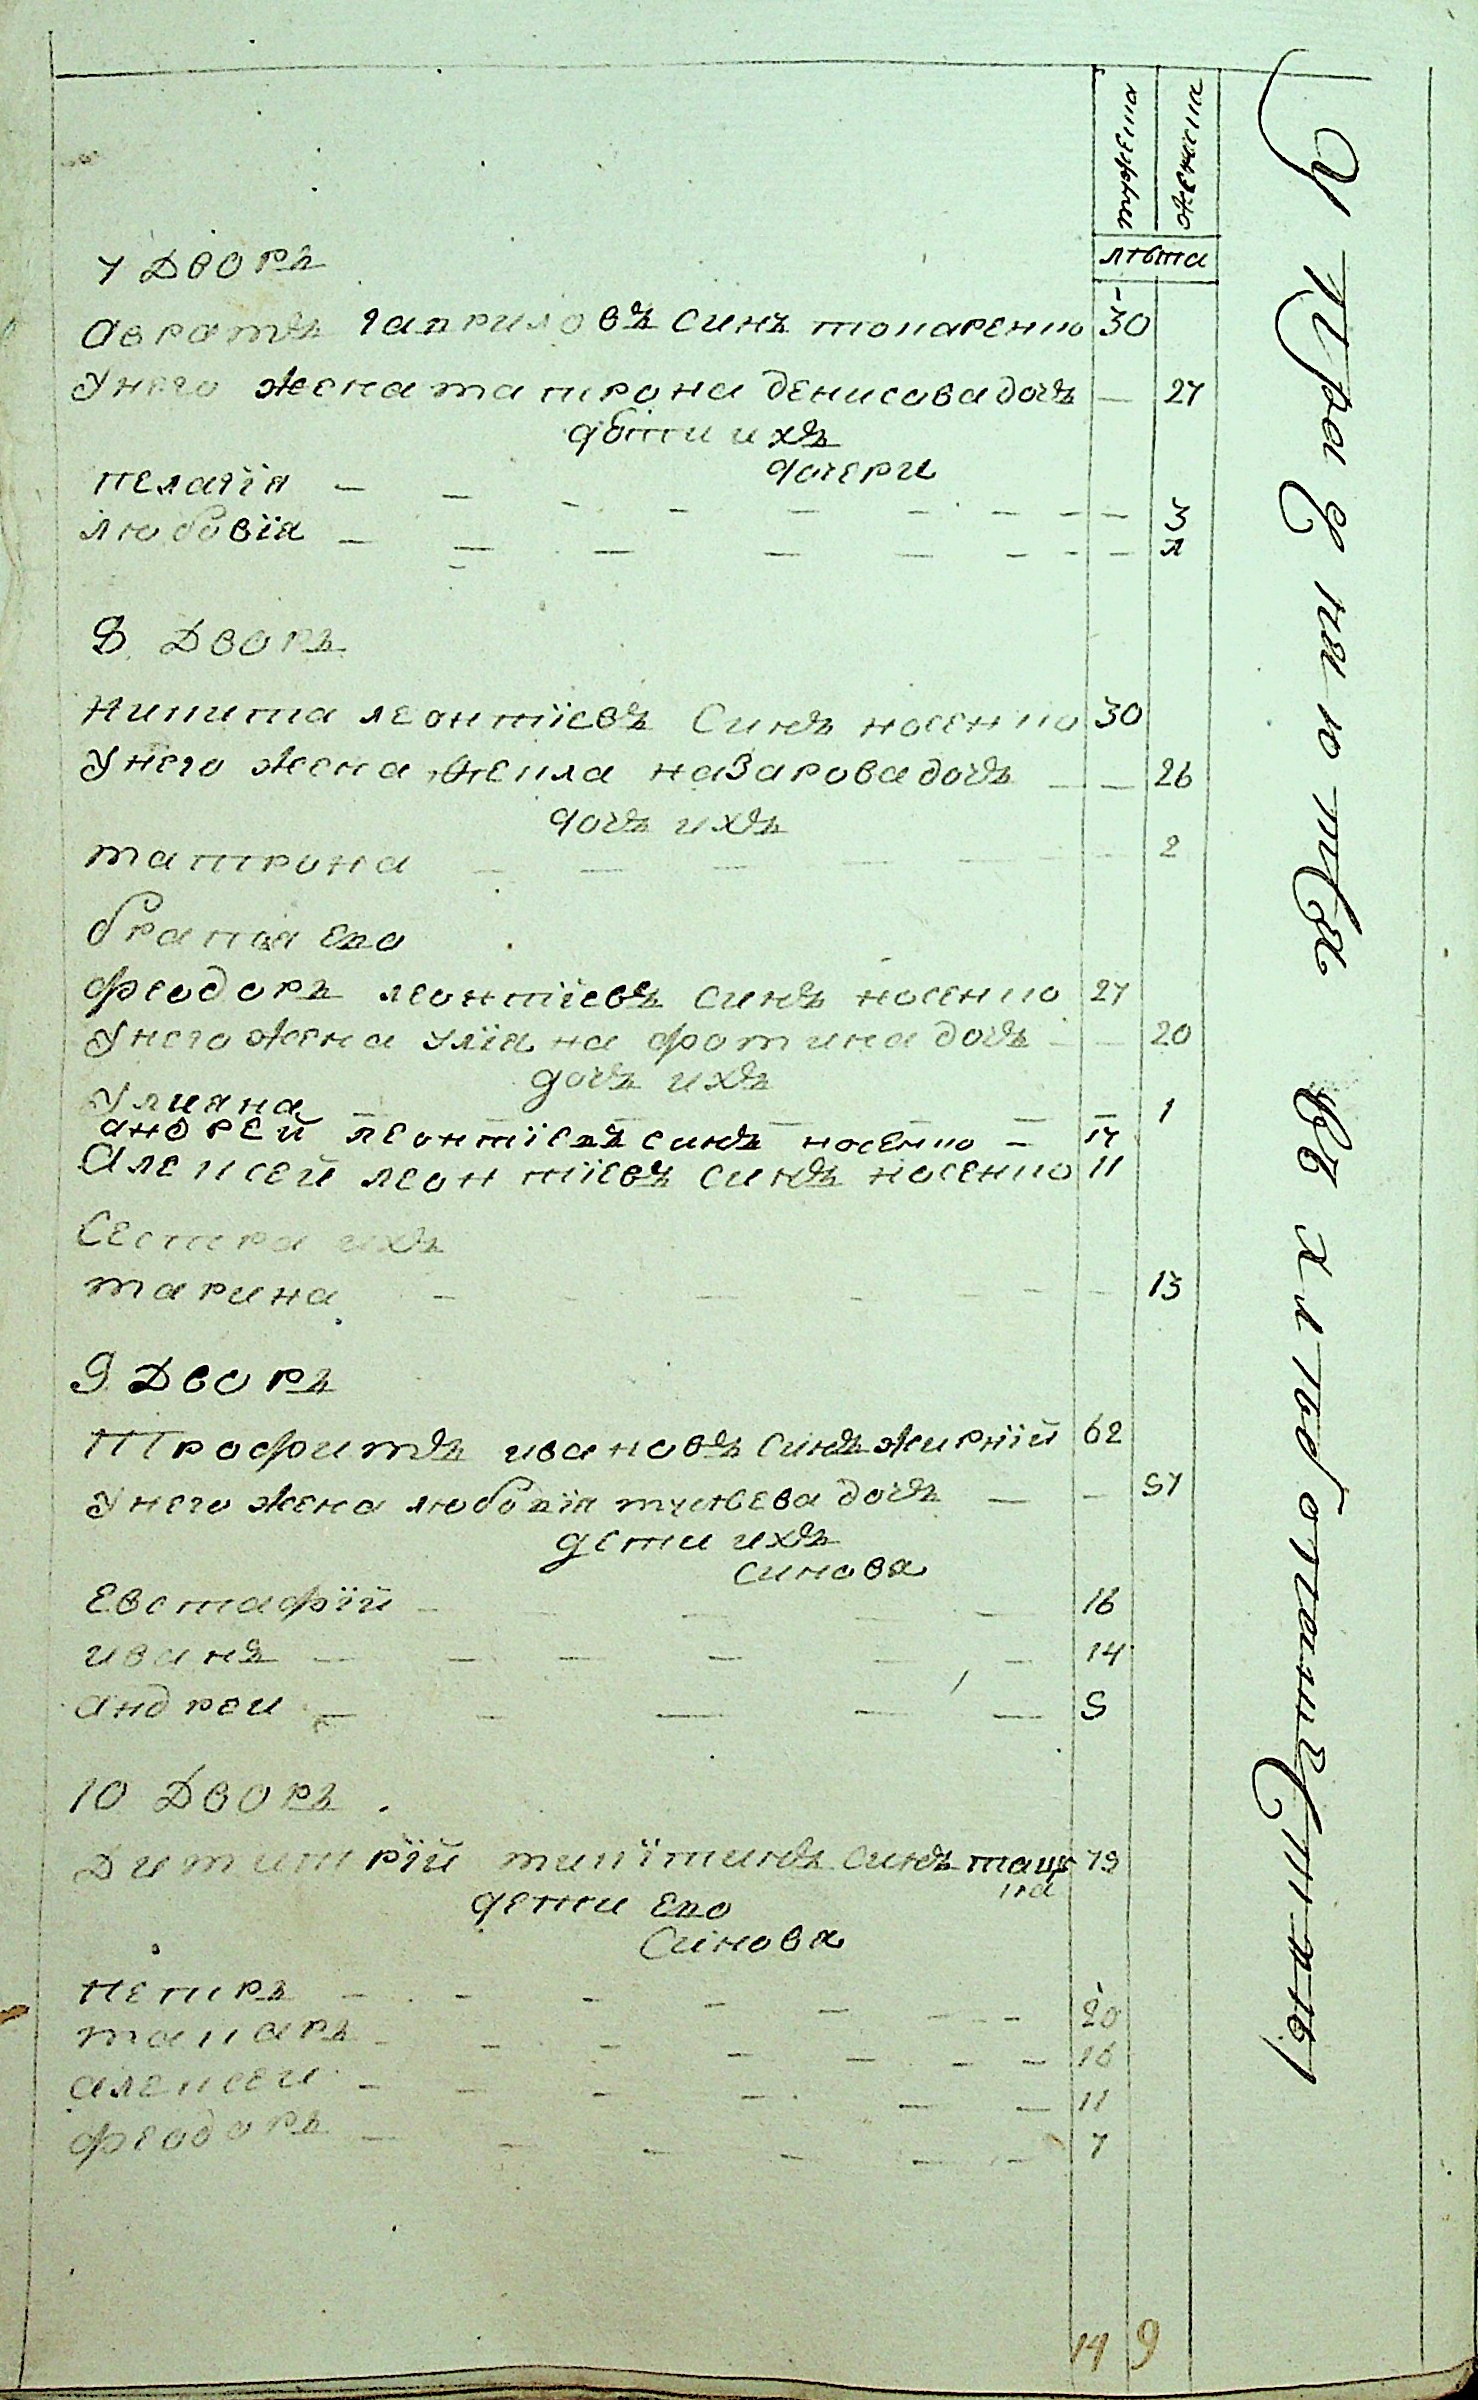 мужеска
женска
лѣта
7 Дворъ
Аврамъ гавриловъ синъ топаренко 30
Унего жена матрона денисова дочъ — 27
дѣти ихъ
дочери
пелагія — — — — — — — — — 3
любовія — — — — — — — — 1
8 Дворъ
Никита леонтіевъ Синъ носенко 30
Унего жена ѳекла назарова дочъ — — 26
дочъ ихъ
матрона — — — — — — 2
братя его
феодоръ леонтіевъ синъ носенко 27
Унего жена уліяна фомина дочъ — — 20
дочъ ихъ
Улияна — — — — — — 1
андрей леонтіевъ синъ носенко — 17
Алексей леонтіевъ синъ носенко 11
Сестра ихъ
марина — — — — — — — 13
9 Дворъ
Трофимъ ивановъ синъ жирній 62
Унего жена любовія дочъ — — 57
дети ихъ
синовя
Евстафій — — — — — 16
иванъ — — — — — — 14
андреи — — — — — 9
10 Дворъ
Димитрій микітинъ синъ
дети его
Синовя
Петръ — — — — — — — 20
макаръ — — — — — — — 16
алексеи — — — — — — 11
феодоръ — — — — — — 7
14 9
въ